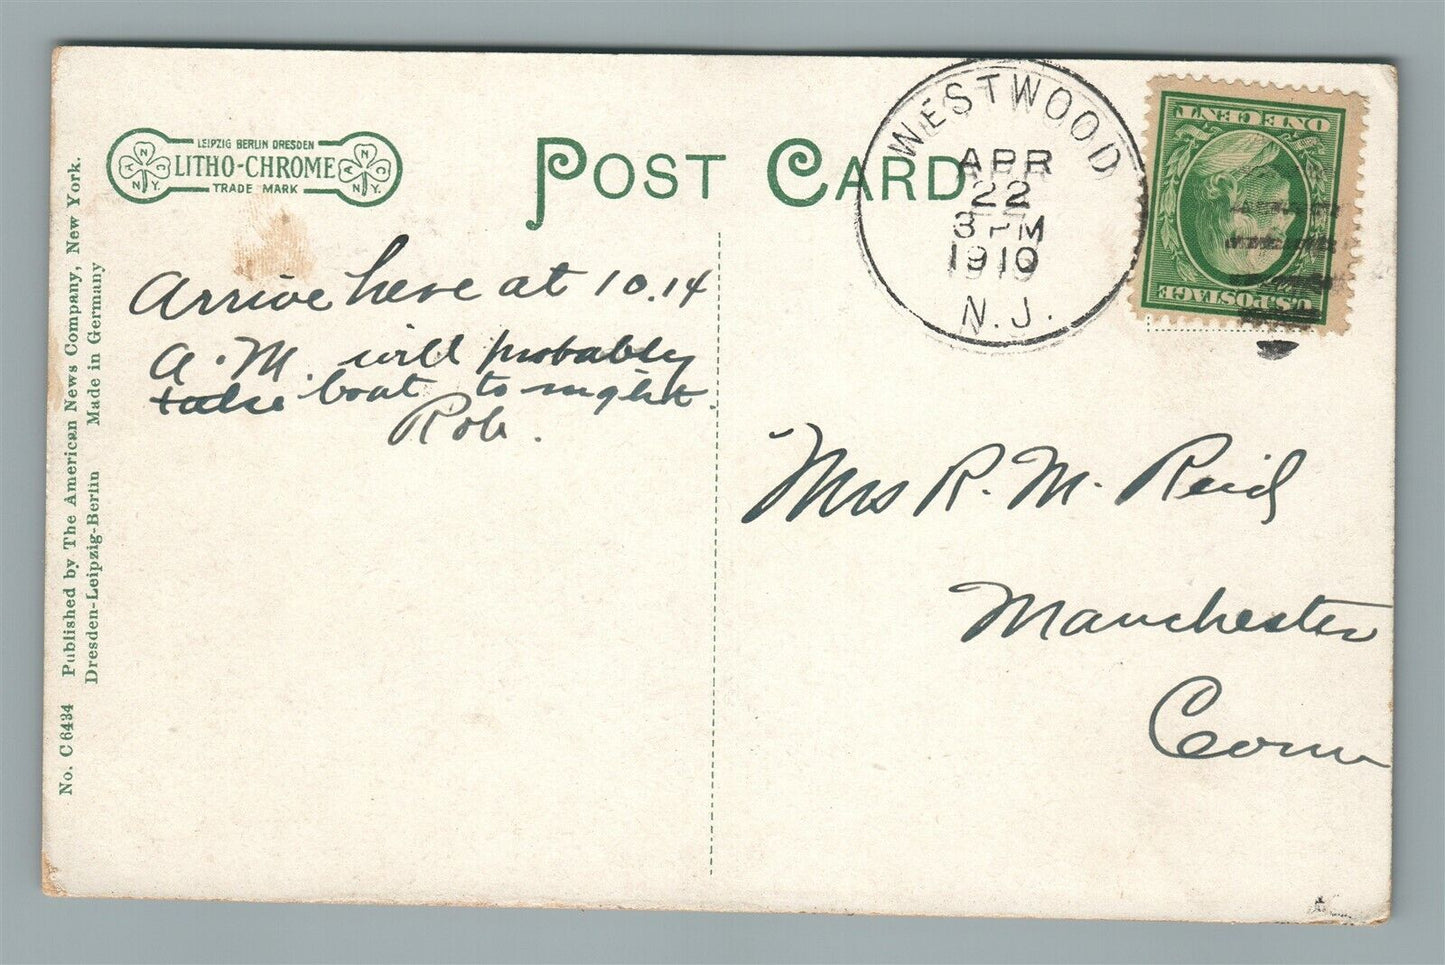 LEIPZIG BERLIN DRESDEN
LITHO-CHROME
TRADE MARK
A N C N.Y.
A N C N.Y.
POST CARD
WESTWOOD
APR
22
3 PM
1910
N.J.
ONE CENT
U.S. POSTAGE
Arrive here at 10.14
A.M. will probably
take boat to night.
Rob.
Mrs R. M. Reid
Manchester
Conn
No. C 6434 Published by The American News Company, New York.
Dresden-Leipzig-Berlin Made in Germany